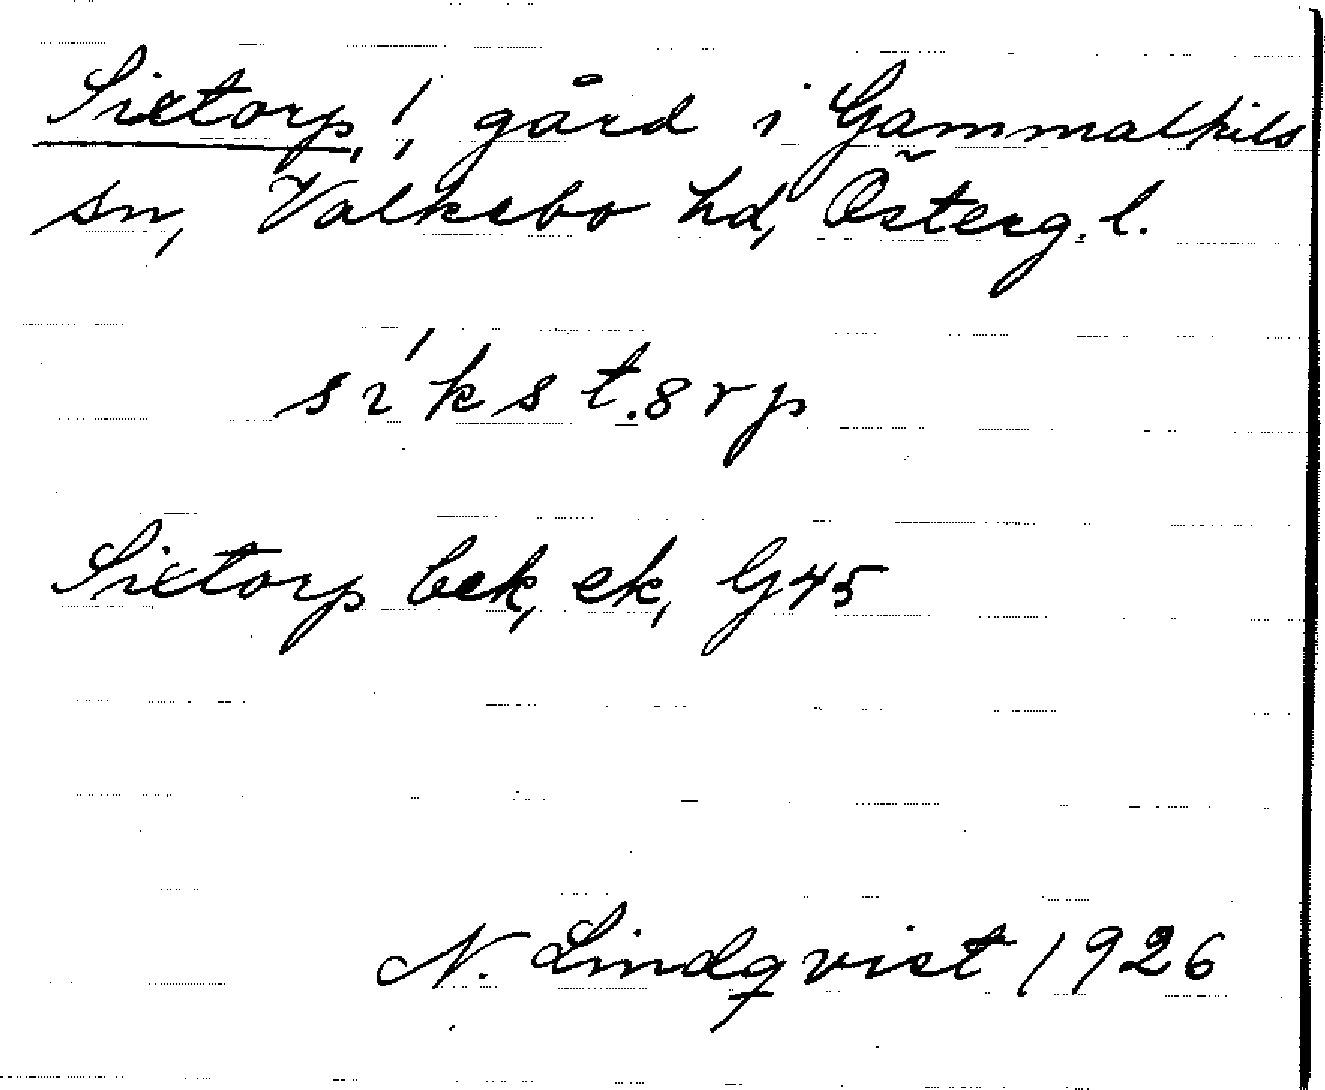 Sixtorp!, gård i Gammalkils
sn, Valkebo hd, Österg. l.
sı́kst.8rp
Sixtorp bek, ek, G45
N. Lindqvist 1926